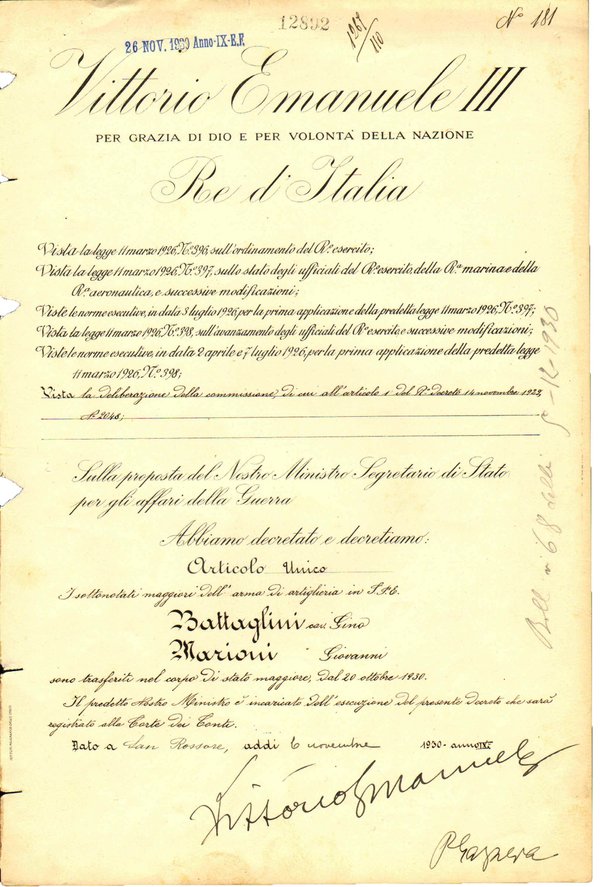 12892
1967/110
Nº 181
26 NOV. 1930 Anno-IX-E.F.
Vittorio Emanuele III
PER GRAZIA DI DIO E PER VOLONTÀ DELLA NAZIONE
Re d'Italia
Vista la legge 11 marzo 1926, Nº 396, sull'ordinamento del Rº esercito;
Vista la legge 11 marzo 1926, Nº 397, sullo stato degli ufficiali del Rº esercito, della Rª marina e della
Rª aeronautica, e successive modificazioni;
Viste le norme esecutive, in data 3 luglio 1926, per la prima applicazione della predetta legge 11 marzo 1926, Nº 397;
Vista la legge 11 marzo 1926, Nº 398, sull'avanzamento degli ufficiali del Rº esercito e successive modificazioni;
Viste le norme esecutive, in data 2 aprile e 7 luglio 1926, per la prima applicazione della predetta legge
11 marzo 1926, Nº 398;
Vista la deliberazione della commissione, di cui all'articolo 1 del Rº decreto 14 novembre 1929,
Nº 2048;
Sulla proposta del Nostro Ministro Segretario di Stato
per gli affari della Guerra
Abbiamo decretato e decretiamo:
Articolo Unico
I sottonotati maggiori dell'arma di artiglieria in S.P.E.
Battaglini cav. Gino
Marioni Giovanni
sono trasferiti nel corpo di stato maggiore, dal 20 ottobre 1930.
Il predetto Nostro Ministro è incaricato dell'esecuzione del presente decreto che sarà
registrato alla Corte dei Conti.
Dato a San Rossore, addì 6 novembre 1930 - anno IX º
Vittorio Emanuele
P Gazzera
Boll. n. 68 delli 5-12-1930